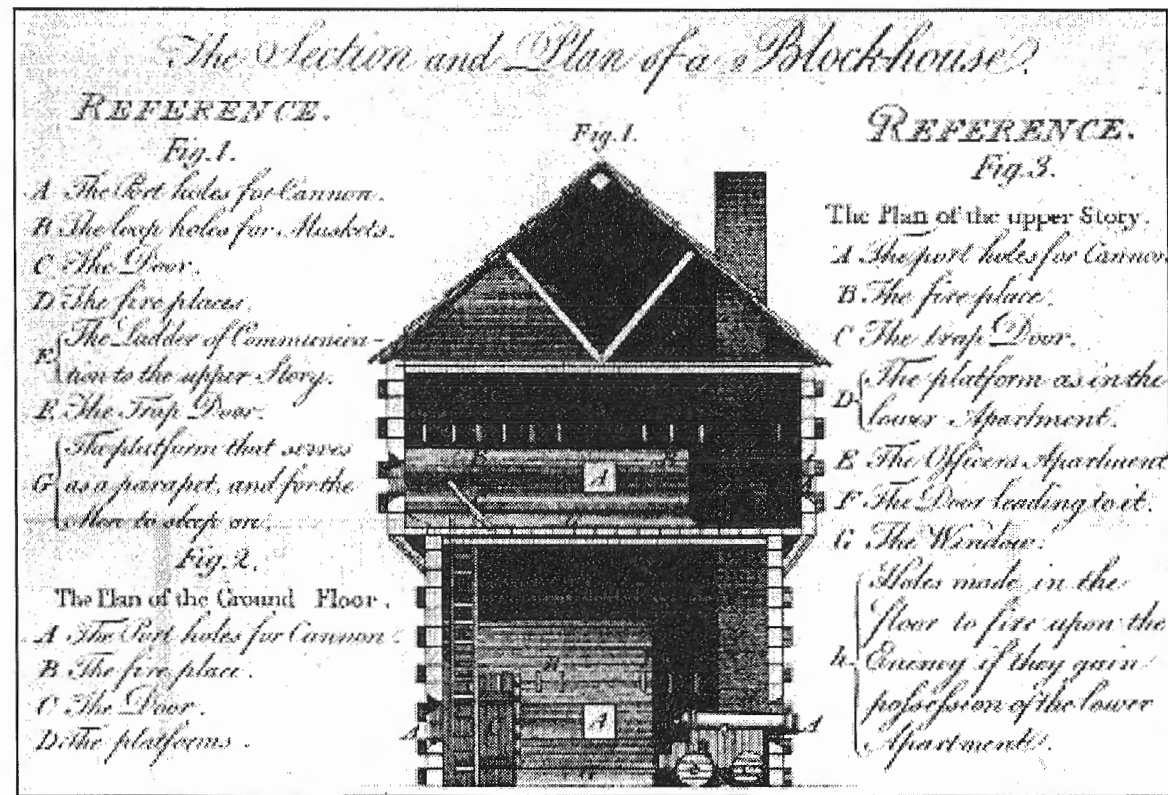 The Section and Plan of a Blockhouse.
REFERENCE.
Fig. 1.
A The Port holes for Cannon.
B The loop holes for Muskets.
C The Door.
D The fire places.
E The Ladder of Communica-
tion to the upper Story.
E The Trap Door.
G The platform that serves
as a parapet, and for the
Men to sleep on.
Fig. 2.
The Plan of the Ground Floor.
A The Port holes for Cannon.
B The fire place.
C The Door.
D. The platforms.
Fig. 1.
A
B
A
A
REFERENCE.
Fig. 3.
The Plan of the upper Story.
A The port holes for Cannon
B The fire place.
C The trap Door.
D The platform as in the
lower Apartment.
E The Officers Apartment
F The Door leading to it.
G The Window.
h Holes made in the
floor to fire upon the
Enemy if they gain
possession of the lower
Apartment.